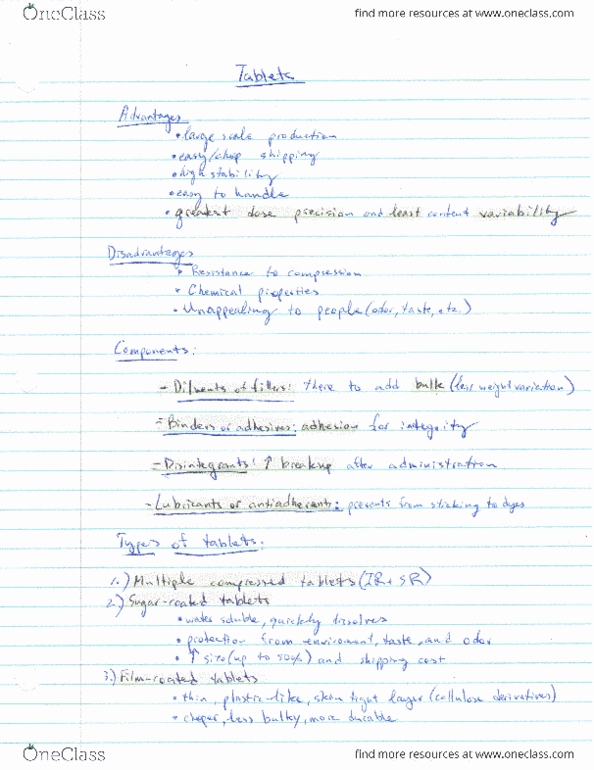 OneClass
find more resources at www.oneclass.com
Tablets
Advantages
• large scale production
• easy/cheap shipping
• high stability
• easy to handle
• greatest dose precision and least content variability
Disadvantages
• Resistance to compression
• Chemical properties
• Unappealing to people (odor, taste, etc.)
Components:
- Diluents of fillers: there to add bulk (less weight variation)
- Binders or adhesives: adhesion for integrity
- Disintegrants: ↑ breakup after administration
- Lubricants or antiadherents: prevents from sticking to dyes
Types of tablets:
1.) Multiple compressed tablets (IR + SR)
2.) Sugar-coated tablets
• water soluble, quickly dissolves
• protection from enviroment, taste, and odor
• ↑ size (up to 50%) and shipping cost
3.) Film-coated tablets
• thin, plastic-like, skin tight layer (cellulose derivatives)
• cheper, less bulky, more durable
OneClass
find more resources at www.oneclass.com